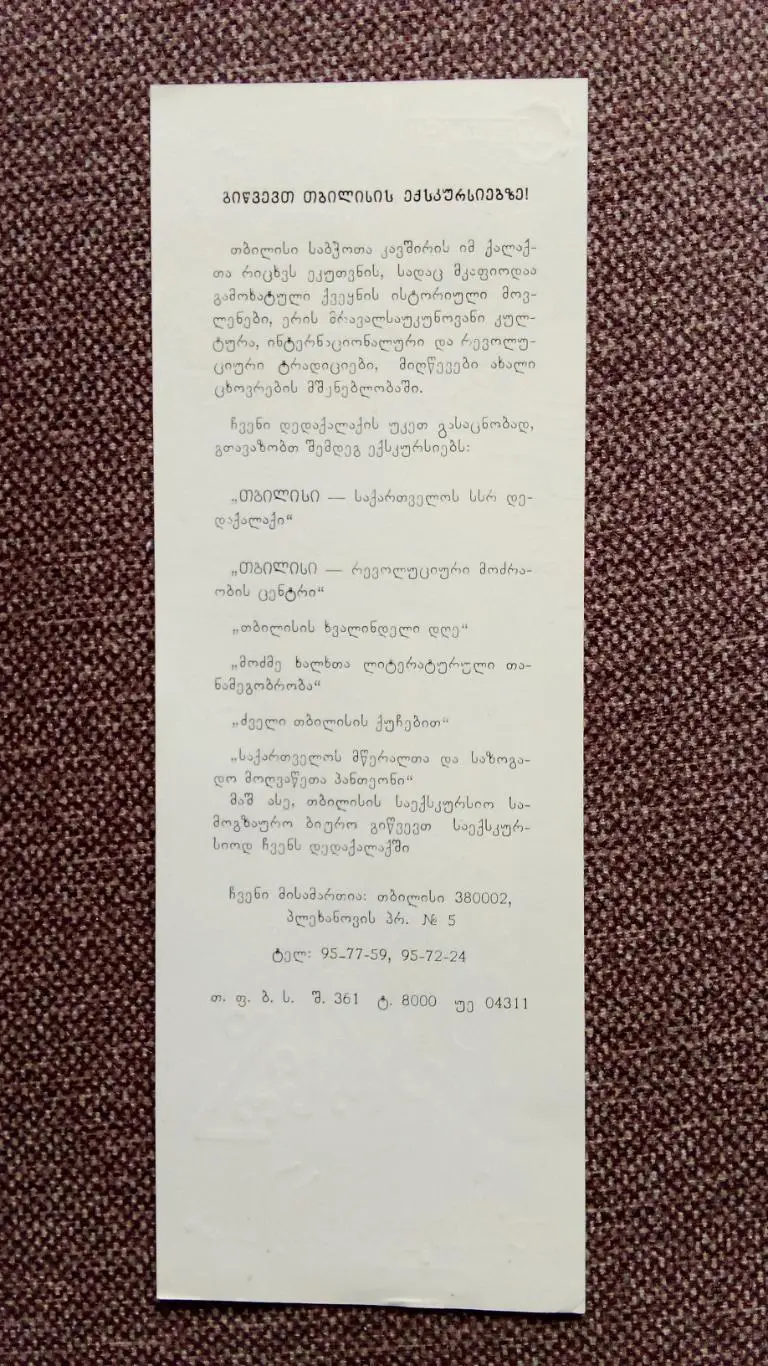 გიწვევთ თბილისის ექსკურსიებზე!
თბილისი საბჭოთა კავშირის იმ ქალაქ-
თა რიცხვს ეკუთვნის, სადაც მკაფიოდაა
გამოხატული ქვეყნის ისტორიული მოვ-
ლენები, ერის მრავალსაუკუნოვანი კულ-
ტურა, ინტერნაციონალური და რევოლუ-
ციური ტრადიციები, მიღწევები ახალი
ცხოვრების მშენებლობაში.
ჩვენი დედაქალაქის უკეთ გასაცნობად,
გთავაზობთ შემდეგ ექსკურსიებს:
„თბილისი — საქართველოს სსრ დე-
დაქალაქი“
„თბილისი — რევოლუციური მოძრა-
ობის ცენტრი“
„თბილისის ხვალინდელი დღე“
„მოძმე ხალხთა ლიტერატურული თა-
ნამეგობრობა“
„ძველი თბილისის ქუჩებით“
„საქართველოს მწერალთა და საზოგა-
დო მოღვაწეთა პანთეონი“
მაშ ასე, თბილისის საექსკურსიო სა-
მოგზაურო ბიურო გიწვევთ საექსკურ-
სიოდ ჩვენს დედაქალაქში
ჩვენი მისამართია: თბილისი 380002,
პლეხანოვის პრ. № 5
ტელ: 95-77-59, 95-72-24
თ. ფ. ბ. ს. შ. 361 ტ. 8000 უე 04311